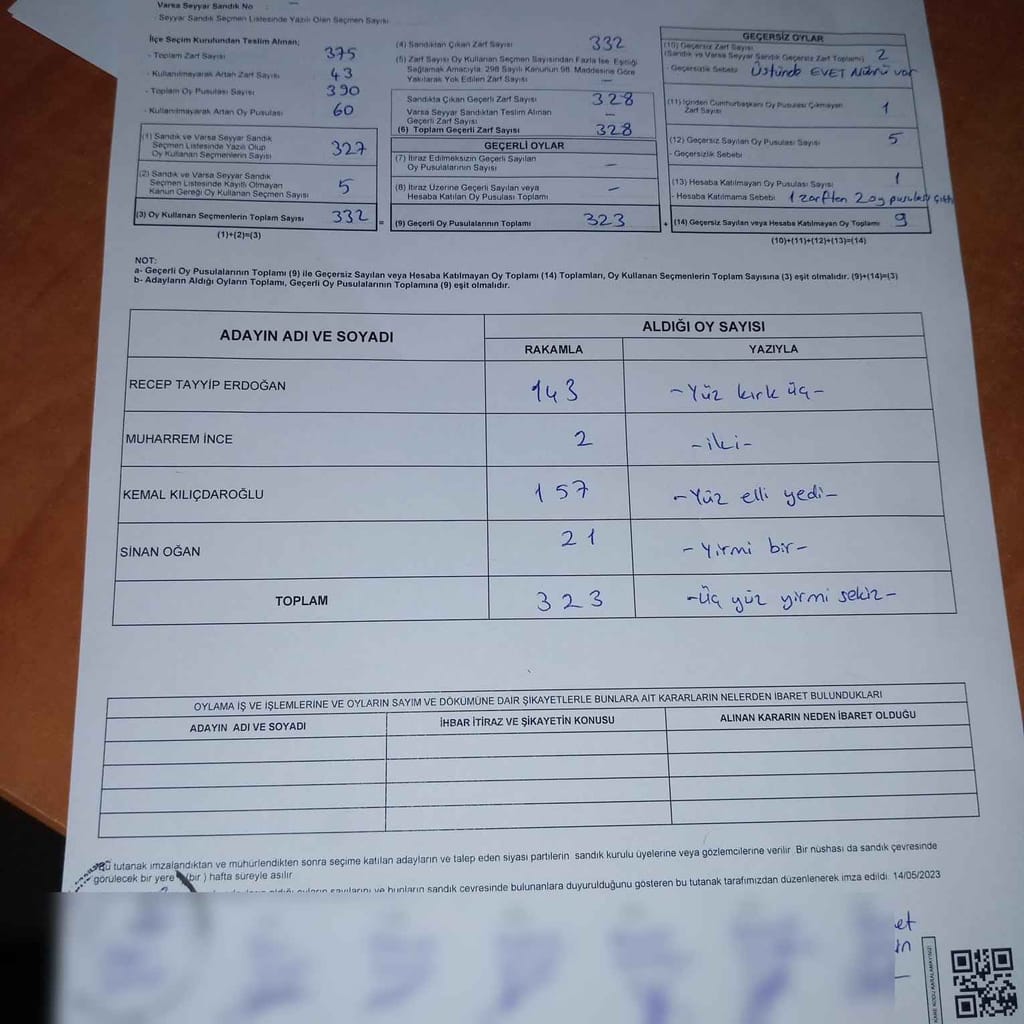 Varsa Seyyar Sandık No –
- Seyyar Sandık Seçmen Listesinde Yazılı Olan Seçmen Sayısı
İlçe Seçim Kurulundan Teslim Alınan;
- Toplam Zarf Sayısı 375
- Kullanılmayarak Artan Zarf Sayısı 43
- Toplam Oy Pusulası Sayısı 390
- Kullanılmayarak Artan Oy Pusulası 60
(1) Sandık ve Varsa Seyyar Sandık
Seçmen Listesinde Yazılı Olup
Oy Kullanan Seçmenlerin Sayısı 327
(2) Sandık ve Varsa Seyyar Sandık
Seçmen Listesinde Kayıtlı Olmayan
Kanun Gereği Oy Kullanan Seçmen Sayısı 5
(3) Oy Kullanan Seçmenlerin Toplam Sayısı 332
(1)+(2)=(3)
(4) Sandıktan Çıkan Zarf Sayısı 332
(5) Zarf Sayısı Oy Kullanan Seçmen Sayısından Fazla İse, Eşitliği
Sağlamak Amacıyla, 298 Sayılı Kanunun 98. Maddesine Göre
Yakılarak Yok Edilen Zarf Sayısı –
Sandıkta Çıkan Geçerli Zarf Sayısı 328
Varsa Seyyar Sandıktan Teslim Alınan
Geçerli Zarf Sayısı –
(6) Toplam Geçerli Zarf Sayısı 328
GEÇERLİ OYLAR
(7) İtiraz Edilmeksizin Geçerli Sayılan
Oy Pusulalarının Sayısı –
(8) İtiraz Üzerine Geçerli Sayılan veya
Hesaba Katılan Oy Pusulası Toplamı –
= (9) Geçerli Oy Pusulalarının Toplamı 323
GEÇERSİZ OYLAR
(10) Geçersiz Zarf Sayısı
(Sandık ve Varsa Seyyar Sandık Geçersiz Zarf Toplamı) 2
- Geçersizlik Sebebi Üstünde EVET Mührü var
(11) İçinden Cumhurbaşkanı Oy Pusulası Çıkmayan
Zarf Sayısı 1
(12) Geçersiz Sayılan Oy Pusulası Sayısı 5
- Geçersizlik Sebebi
(13) Hesaba Katılmayan Oy Pusulası Sayısı 1
- Hesaba Katılmama Sebebi 1 zarften 2 oy pusulası çıktı
+ (14) Geçersiz Sayılan veya Hesaba Katılmayan Oy Toplamı 9
(10)+(11)+(12)+(13)=(14)
NOT:
a- Geçerli Oy Pusulalarının Toplamı (9) ile Geçersiz Sayılan veya Hesaba Katılmayan Oy Toplamı (14) Toplamları, Oy Kullanan Seçmenlerin Toplam Sayısına (3) eşit olmalıdır. (9)+(14)=(3)
b- Adayların Aldığı Oyların Toplamı, Geçerli Oy Pusulalarının Toplamına (9) eşit olmalıdır.
ADAYIN ADI VE SOYADI
ALDIĞI OY SAYISI
RAKAMLA YAZIYLA
RECEP TAYYİP ERDOĞAN 143 -Yüz kırk üç-
MUHARREM İNCE 2 -iki-
KEMAL KILIÇDAROĞLU 157 -Yüz elli yedi-
SİNAN OĞAN 21 -Yirmi bir-
TOPLAM 323 -Üç yüz yirmi sekiz-
OYLAMA İŞ VE İŞLEMLERİNE VE OYLARIN SAYIM VE DÖKÜMÜNE DAİR ŞİKAYETLERLE BUNLARA AİT KARARLARIN NELERDEN İBARET BULUNDUKLARI
ADAYIN ADI VE SOYADI İHBAR İTİRAZ VE ŞİKAYETİN KONUSU ALINAN KARARIN NEDEN İBARET OLDUĞU
Bu tutanak imzalandıktan ve mühürlendikten sonra seçime katılan adayların ve talep eden siyasi partilerin sandık kurulu üyelerine veya gözlemcilerine verilir. Bir nüshası da sandık çevresinde
görülecek bir yere (bir) hafta süreyle asılır.
aldığı oyların sayılarını ve bunların sandık çevresinde bulunanlara duyurulduğunu gösteren bu tutanak tarafımızdan düzenlenerek imza edildi. 14/05/2023